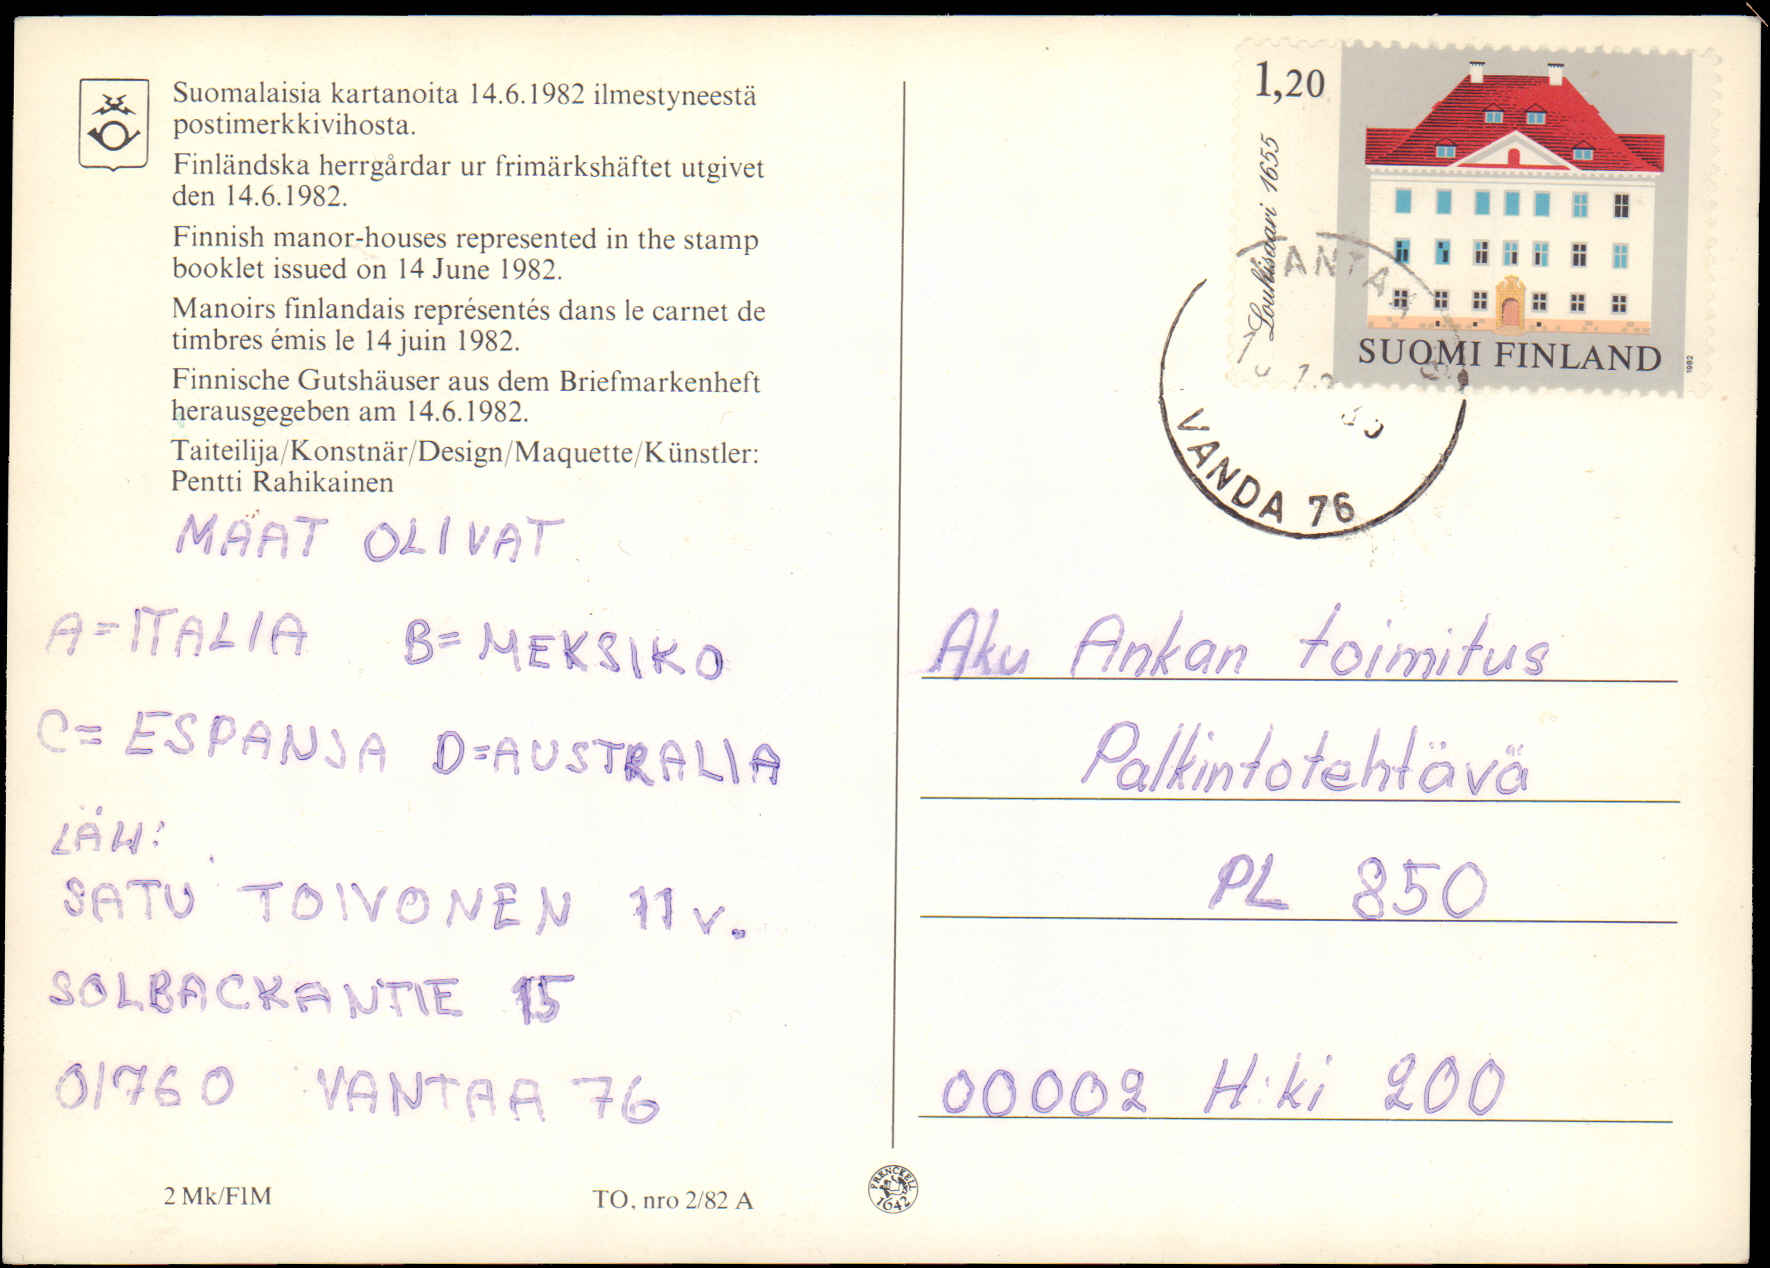 Suomalaisia kartanoita 14.6.1982 ilmestyneestä
postimerkkivihosta.
Finländska herrgårdar ur frimärkshäftet utgivet
den 14.6.1982.
Finnish manor-houses represented in the stamp
booklet issued on 14 June 1982.
Manoirs finlandais représentés dans le carnet de
timbres émis le 14 juin 1982.
Finnische Gutshäuser aus dem Briefmarkenheft
herausgegeben am 14.6.1982.
Taiteilija/Konstnär/Design/Maquette/Künstler:
Pentti Rahikainen
MAAT OLIVAT
A=ITALIA B=MEKSIKO
C=ESPANJA D=AUSTRALIA
LÄH:
SATU TOIVONEN 11 v.
SOLBACKANTIE 15
01760 VANTAA 76
2 Mk/FIM
TO, nro 2/82 A
FRENCKELL
1642
1,20
Louhisaari 1655
SUOMI FINLAND
1982
VANDA 76
Aku Ankan toimitus
Palkintotehtävä
PL 850
00002 H:ki 200